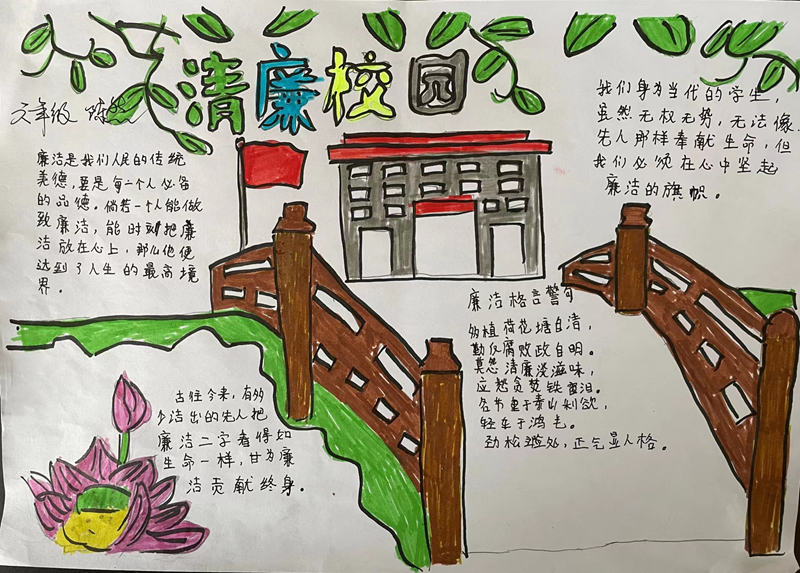 清廉校园
六年级 陈
廉洁是我们人民的传统
美德，更是每一个人必备
的品德。倘若一个人能做
致廉洁，能时刻把廉
洁放在心上，那么他便
达到了人生的最高境
界。
我们身为当代的学生，
虽然无权无势，无法像
先人那样奉献生命，但
我们必须在心中坚起
廉洁的旗帜。
廉洁格言警句
多植荷花塘自清，
勤反腐败政自明。
莫怨清廉淡滋味，
应愁贪焚铁窗泪。
名节重于泰山利欲，
轻车于鸿毛。
劲松遒处，正气显人格。
古往今来，有多
少洁出的先人把
廉洁二字看得如
生命一样，甘为廉
洁贡献终身。